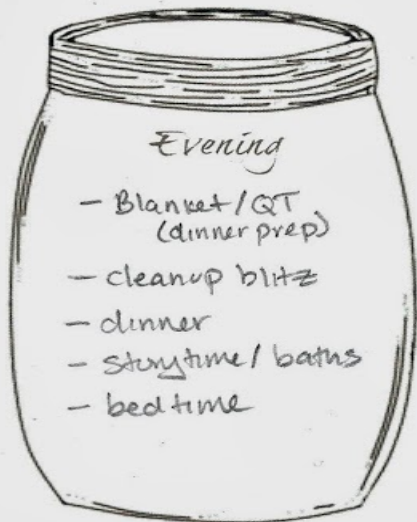 Evening
- Blanket/QT
(dinner prep)
- cleanup blitz
- dinner
- storytime/ baths
- bedtime